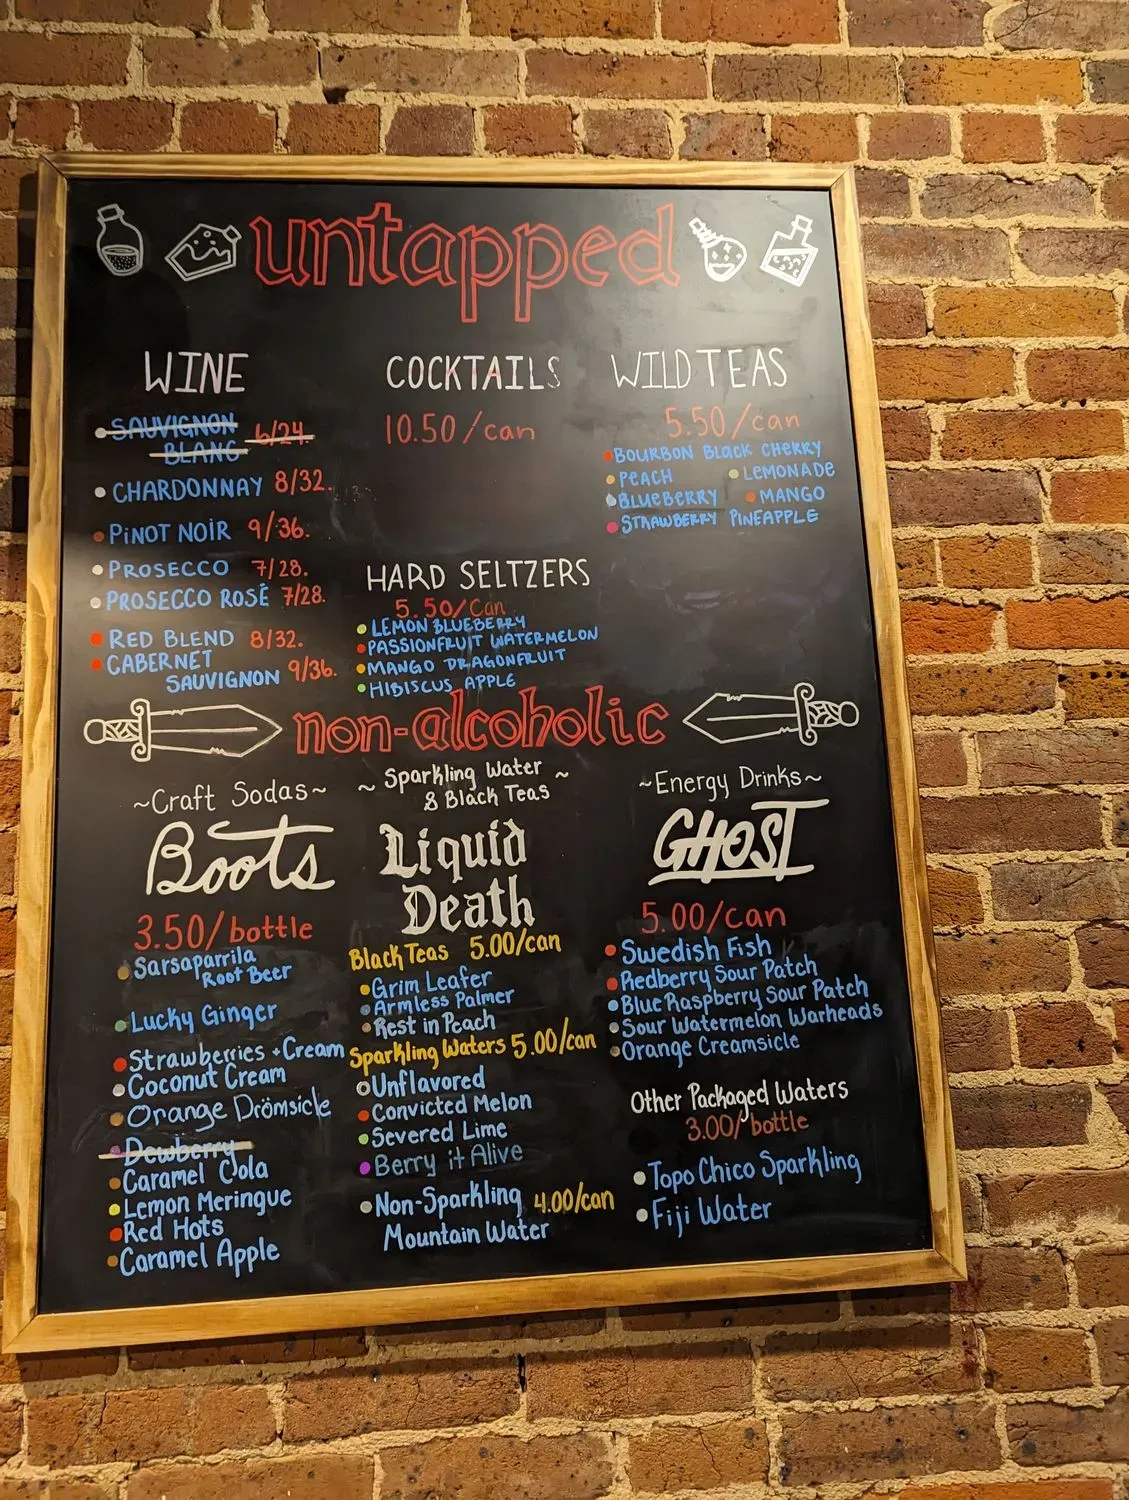 untapped
WINE
SAUVIGNON 6/24.
BLANC
CHARDONNAY 8/32.
PINOT NOIR 9/36.
PROSECCO 7/28.
PROSECCO ROSÉ 7/28.
RED BLEND 8/32.
CABERNET
SAUVIGNON 9/36.
COCKTAILS
10.50/can
HARD SELTZERS
5.50/Can
LEMON BLUEBERRY
PASSIONFRUIT WATERMELON
MANGO DRAGONFRUIT
HIBISCUS APPLE
WILD TEAS
5.50/can
BOURBON BLACK CHERRY
PEACH LEMONADE
BLUEBERRY MANGO
STRAWBERRY PINEAPPLE
non-alcoholic
~Craft Sodas~
Boots
3.50/bottle
Sarsaparrila
Root Beer
Lucky Ginger
Strawberries + Cream
Coconut Cream
Orange Drömsicle
Dewberry
Caramel Cola
Lemon Meringue
Red Hots
Caramel Apple
~ Sparkling Water ~
& Black Teas
Liquid
Death
Black Teas 5.00/can
Grim Leafer
Armless Palmer
Rest in Peach
Sparkling Waters 5.00/can
Unflavored
Convicted Melon
Severed Lime
Berry it Alive
Non-Sparkling 4.00/can
Mountain Water
~Energy Drinks~
GHOST
5.00/can
Swedish Fish
Redberry Sour Patch
Blue Raspberry Sour Patch
Sour Watermelon Warheads
Orange Creamsicle
Other Packaged Waters
3.00/bottle
Topo Chico Sparkling
Fiji Water